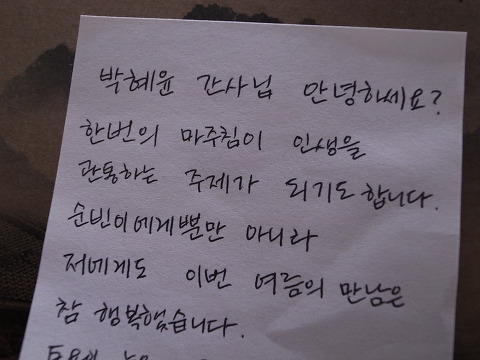 박혜윤 간사님 안녕하세요?
한번의 마주침이 인생을
관통하는 주제가 되기도 합니다.
순빈이에게뿐만 아니라
저에게도 이번 여름의 만남은
참 행복했습니다.